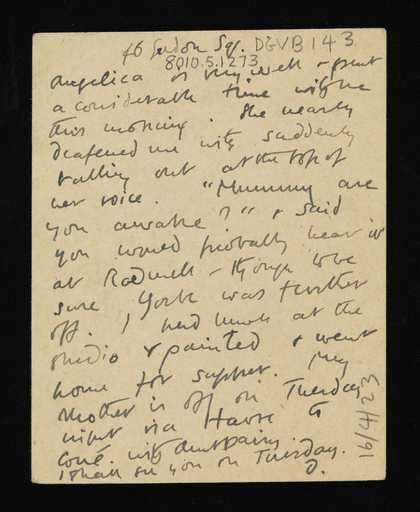 46 Gordon Sq. DGVB 143
8010.5.1273
Angelica is very well & spent
a considerable time with me
this morning. She nearly
deafened me with suddenly
calling out at the top of
her voice. "Mummy are
you awake?" & said
you would probably hear it
at Rodmell – though to be
sure York was further
off. I had lunch at the
studio & painted & went
home for supper. My
Mother is off on Thursday
night via Havre to
with Aunt
I shall see you on Tuesday.
D.
16/4/23